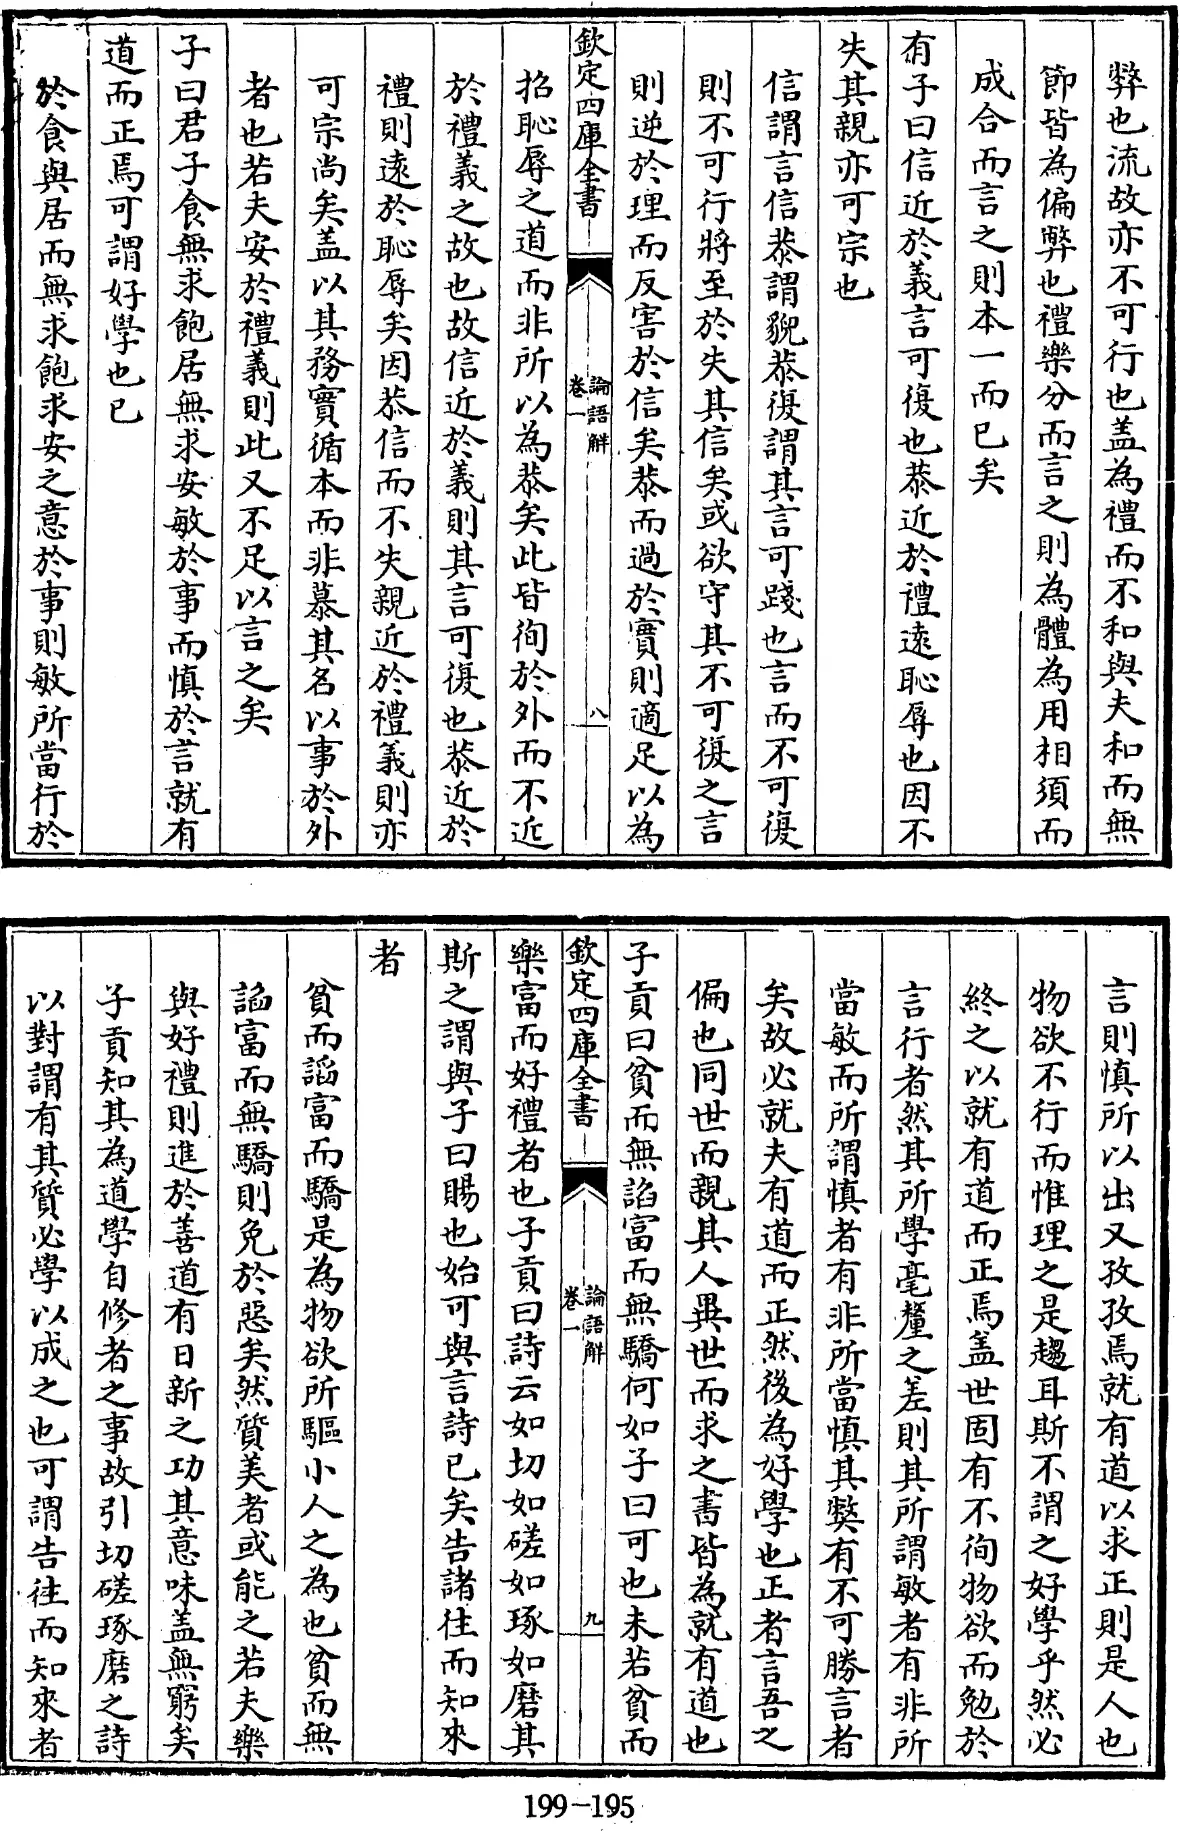 弊也流故亦不可行也盖為禮而不和與夫和而無
節皆為偏弊也禮樂分而言之則為體為用相須而
成合而言之則本一而已矣
有子曰信近於義言可復也恭近於禮遠恥辱也因不
失其親亦可宗也
信謂言信恭謂貌恭復謂其言可踐也言而不可復
則不可行將至於失其信矣或欲守其不可復之言
則逆於理而反害於信矣恭而過於實則適足以為
欽定四庫全書
論語解
卷一
八
招恥辱之道而非所以為恭矣此皆徇於外而不近
於禮義之故也故信近於義則其言可復也恭近於
禮則遠於恥辱矣因恭信而不失親近於禮義則亦
可宗尚矣盖以其務實循本而非慕其名以事於外
者也若夫安於禮義則此又不足以言之矣
子曰君子食無求飽居無求安敏於事而慎於言就有
道而正焉可謂好學也已
於食與居而無求飽求安之意於事則敏所當行於
言則慎所以出又孜孜焉就有道以求正則是人也
物欲不行而惟理之是趨耳斯不謂之好學乎然必
終之以就有道而正焉盖世固有不徇物欲而勉於
言行者然其所學毫釐之差則其所謂敏者有非所
當敏而所謂慎者有非所當慎其獘有不可勝言者
矣故必就夫有道而正然後為好學也正者言吾之
偏也同世而親其人異世而求之書皆為就有道也
子貢曰貧而無諂富而無驕何如子曰可也未若貧而
欽定四庫全書
論語解
卷一
九
樂富而好禮者也子貢曰詩云如切如磋如琢如磨其
斯之謂與子曰賜也始可與言詩已矣告諸往而知來
者
貧而諂富而驕是為物欲所驅小人之為也貧而無
諂富而無驕則免於惡矣然質美者或能之若夫樂
與好禮則進於善道有日新之功其意味盖無窮矣
子貢知其為道學自修者之事故引切磋琢磨之詩
以對謂有其質必學以成之也可謂告往而知來者
199-195